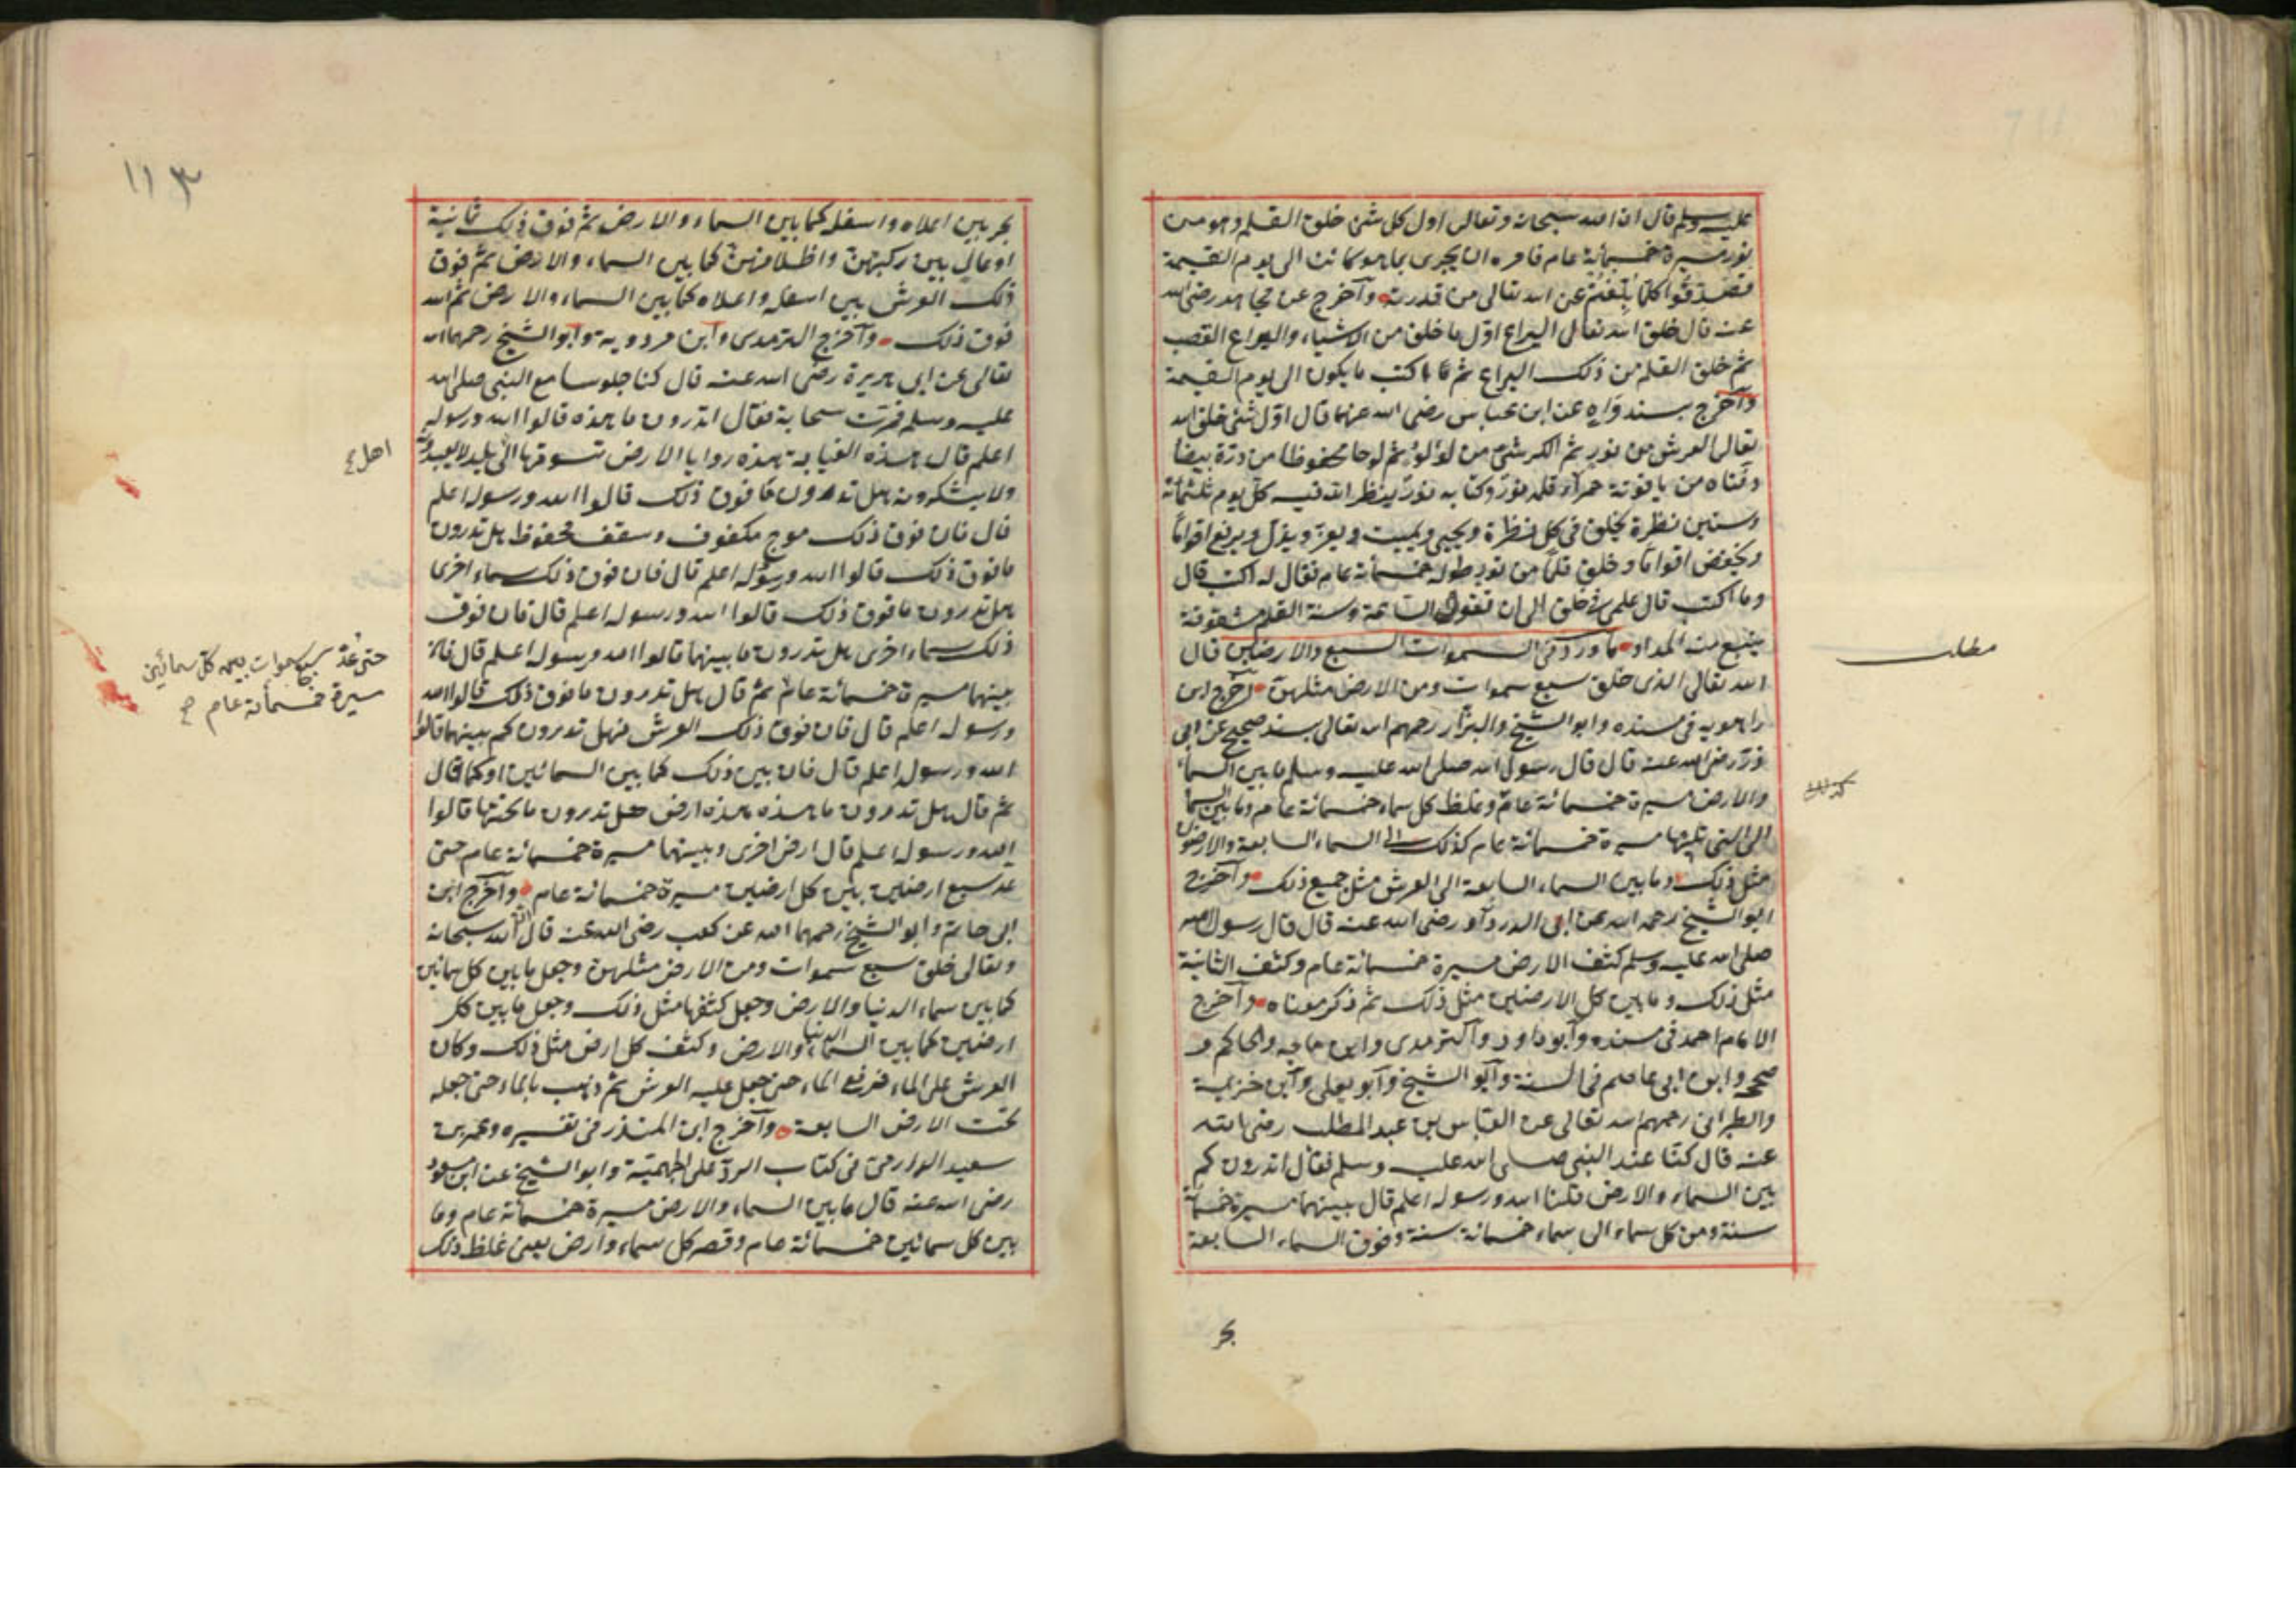 عليه وسلم قال ان الله سبحانه وتعالى اول كل شئ خلق القلم وهو من
نور مسيرة خمسمائة عام فامره ان يجرى بما هو كائن الى يوم القيمة
عن الله تعالى من قدرته وآخرج عن مجاهد رضى الله
عنه قال خلق الله تعالى اليراع اول ما خلق من الاشياء واليراع القصب
ثم خلق القلم من ذلك اليراع ثم قال اكتب ما يكون الى يوم القيمة
وآخرج بسند واه عن ابن عباس رضى الله عنهما قال اول شئ خلق الله
تعالى العرش من نور ثم الكرسى من لؤلؤ ثم لوحا محفوظا من درة بيضا
دفتاه من ياقوتة حمرآء قلمه نور وكتابه نور ينظر الله فيه كل يوم ثلثمائة
وستين نظرة يخلق فى كل نظرة ويحيى ويميت ويعز ويذل ويرفع اقواما
ويخفض اقواما وخلق قلما من نور طوله خمسمأئة عام فقال له اكتب قال
وما اكتب قال علمى فى خلقى الى ان تقوم الساعة وسنة القلم مشقوقة
ينبع منه المداد ما ورد فى السموات السبع والارضين قال
الله تعالى الذى خلق سبع سموات ومن الارض مثلهن آخرج ابن
راهويه فى مسنده وابو الشيخ والبزار رحمهم الله تعالى بسند صحيح عن ابى
ذر رضى الله عنه قال قال رسول الله صلى الله عليه وسلم ما بين السماء
والارض مسيرة خمسمائة عام وغلظ كل سماء خمسمائة عام وما بين السماء
الى التى تليها مسيرة خمسمائة عام كذلك الى السماء السابعة والارضون
مثل ذلك وما بين السماء السابعة الى العرش مثل جميع ذلك وآخرج
ابو الشيخ رحمه الله عن ابى الدردآء رضى الله عنه قال قال رسول الله
صلى الله عليه وسلم كثف الارض مسيرة خمسمائة عام وكثف الثانية
مثل ذلك وما بين كل الارضين مثل ذلك ثم ذكر معناه وآخرج
الامام احمد فى مسنده وآبو داود وآلترمدى وابن ماجه والحاكم و
صححه وابن ابى عاصم فى السنة وآبو الشيخ وآبو يعلى وآبن خزيمة
والطبرانى رحمهم الله تعالى عن العباس بن عبد المطلب رضى الله
عنه قال كنا عند النبى صلى الله عليه وسلم فقال اتدرون كم
بين السماء والارض قلنا الله ورسوله اعلم قال بينهما مسيرة خمسمائة
سنة ومن كل سماء الى سماء خمسمائة سنة وفوق السماء السابعة
بحر
مطلب
١١٣
بحر بين اعلاه واسفله كما بين السماء والارض ثم فوق ذلك ثمانية
اوعال بين ركبهن واظلافهن كما بين السماء والارض ثم فوق
ذلك العرش بين اسفله واعلاه كما بين السماء والارض ثم الله
فوق ذلك وآخرج الترمدى وآبن مردويه وآبو الشيخ رحمهم الله
تعالى عن ابى هريرة رضى الله عنه قال كنا جلوسا مع النبى صلى الله
عليه وسلم فمرت سحابة فقال اتدرون ما هذه قالوا الله ورسوله
اعلم قال هذه الغيابة هذه روايا الارض تسوقها الى بلد لا يعبدونه
ولا يشكرونه هل تدرون ما فوق ذلك قالوا الله ورسوله اعلم
قال فان فوق ذلك موج مكفوف وسقف محفوظ هل تدرون
ما فوق ذلك قالوا الله ورسوله اعلم قال فان فوق ذلك سماء اخرى
هل تدرون ما فوق ذلك قالوا الله ورسوله اعلم قال فان فوق
ذلك سماء اخرى هل تدرون ما بينهما قالوا الله ورسوله اعلم قال فان
بينهما مسيرة خمسمائة عام ثم قال هل تدرون ما فوق ذلك قالوا الله
ورسوله اعلم قال فان فوق ذلك العرش فهل تدرون كم بينهما قالوا
الله ورسوله اعلم قال فان بين ذلك كما بين السمائين او كما قال
ثم قال هل تدرون ما هذه هذه ارض هل تدرون ما تحتها قالوا
الله ورسوله اعلم قال ارض اخرى وبينهما مسيرة خمسمائة عام حتى
عد سبع ارضين بين كل ارضين مسيرة خمسمائة عام وآخرج ابن
ابى حاتم وابو الشيخ رحمهما الله عن كعب رضى الله عنه قال ان الله سبحانه
وتعالى خلق سبع سموات ومن الارض مثلهن وجعل ما بين كل سمائين
كما بين سماء الدنيا والارض وجعل كثفها مثل ذلك وجعل ما بين كل
ارضين كما بين السماء الدنيا والارض وكثف كل ارض مثل ذلك وكان
العرش على الماء فرفع الماء حتى جعل عليه العرش ثم ذهب بالماء حتى جعله
تحت الارض السابعة وآخرج ابن المنذر فى تفسيره وعثمن بن
سعيد الدارمى فى كتاب الرد على الجهمية وابو الشيخ عن ابن مسعود
رضى الله عنه قال ما بين السماء والارض مسيرة خمسمائة عام وما
بين كل سمائين خمسمائة عام وقصر كل سماء وارض يعنى غلظ ذلك
اهل
حتى عد سبع سموات بين كل سمائين
مسيرة خمسمأئة عام صح